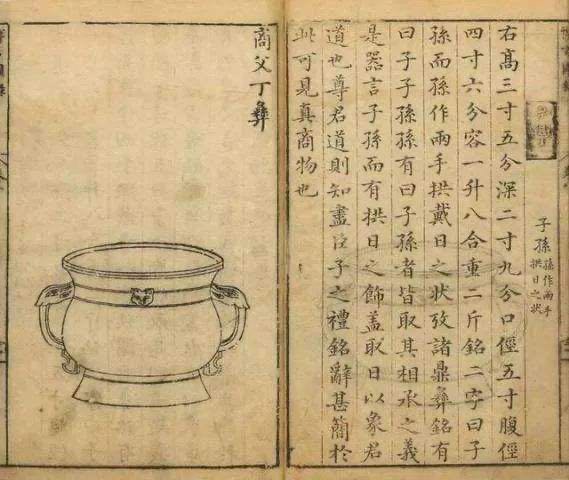 子孫
孫作兩手
拱日之狀
右髙三寸五分深二寸九分口徑五寸腹徑
四寸六分容一升八合重二斤銘二字曰子
孫而孫作兩手拱戴日之狀攷諸鼎彝銘有
曰子子孫孫有曰子孫者皆取其相承之義
是器言子孫而有拱日之飾蓋取日以象君
道也尊君道則知盡臣子之禮銘辭甚簡於
此可見真商物也
商父丁彝